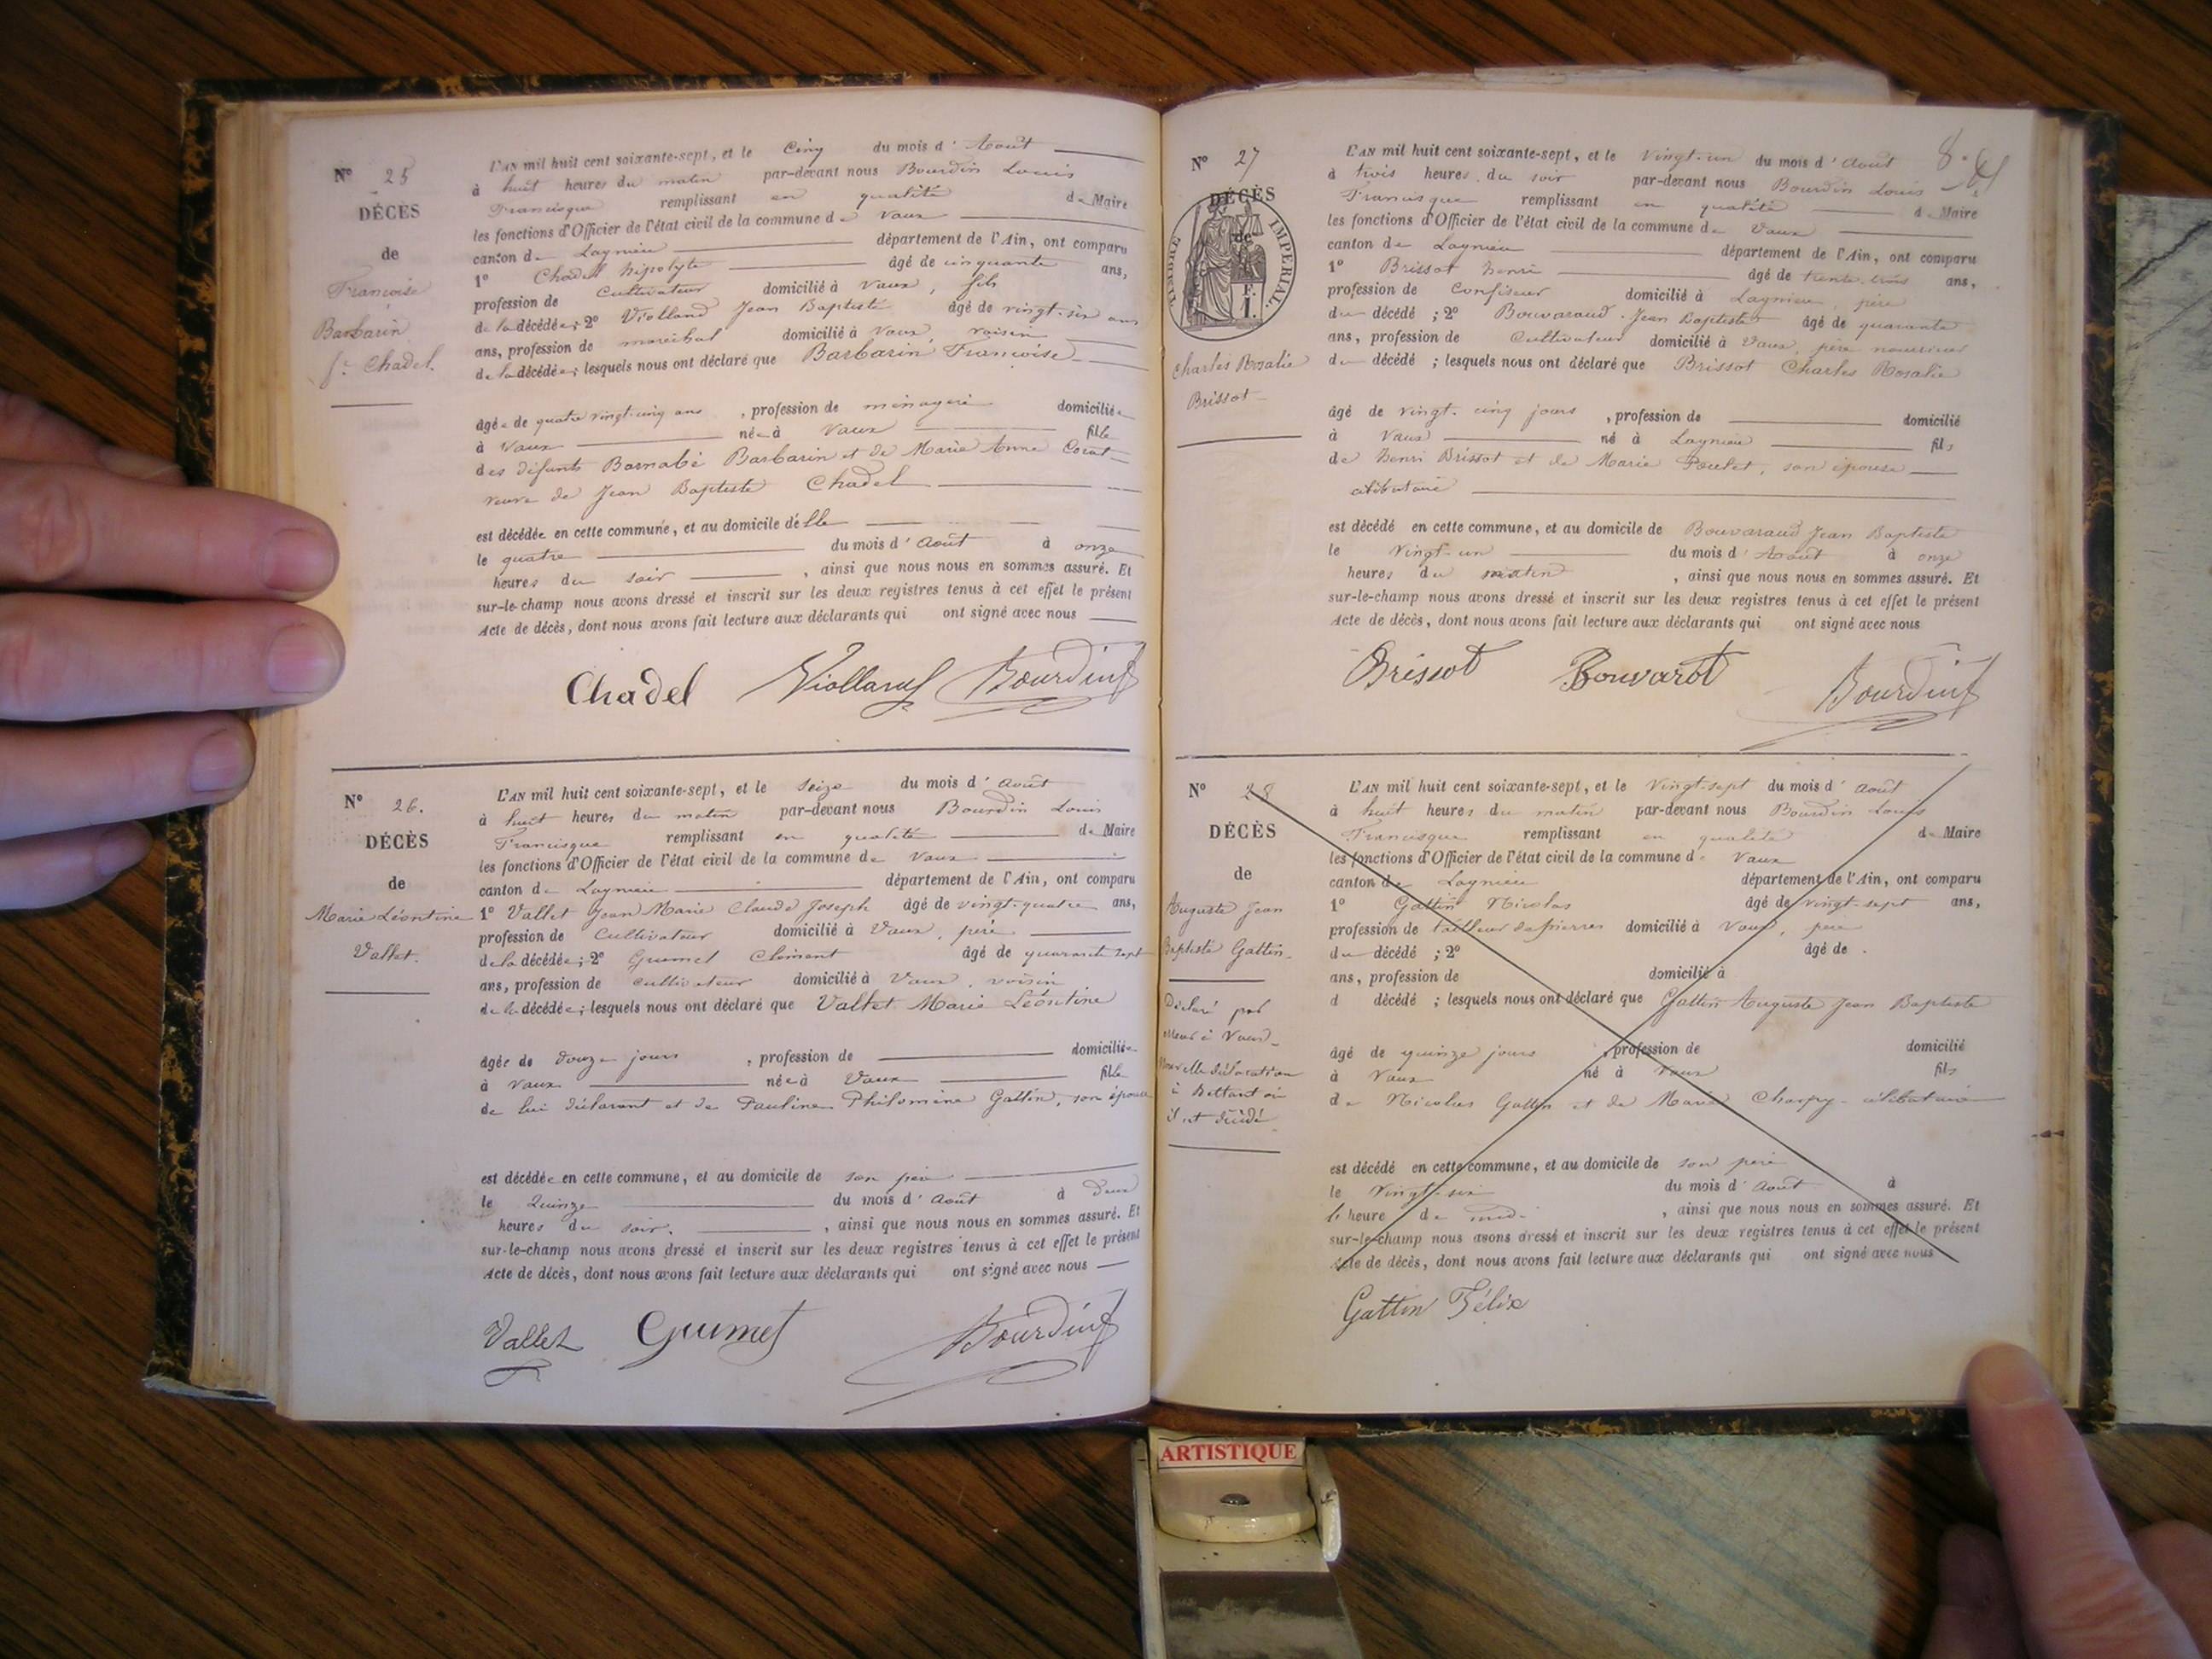 N° 25
DÉCÈS
de
Françoise
Barbarin
fe Chadel.
L'AN mil huit cent soixante-sept, et le Cinq du mois d'Août
à huit heures du matin par-devant nous Bourdin Louis
Francisque remplissant en qualité de Maire
les fonctions d'Officier de l'état civil de la commune de Vaux
canton de Lagnieu département de l'Ain, ont comparu
1° Chadel hipolyte âgé de cinquante ans,
profession de Cultivateur domicilié à Vaux, fils
de la décédée; 2° Violland Jean Baptiste âgé de vingt-six ans
ans, profession de maréchal domicilié à Vaux, voisin
de la décédée; lesquels nous ont déclaré que Barbarin Françoise
âgée de quatre vingt-cinq ans, profession de ménagère domiciliée
à Vaux née à Vaux fille
des défunts Barnabé Barbarin et de Marie Anne Corat
veuve de Jean Baptiste Chadel
est décédée en cette commune, et au domicile d'elle
le quatre du mois d'Août à onze
heures du soir, ainsi que nous nous en sommes assuré. Et
sur-le-champ nous avons dressé et inscrit sur les deux registres tenus à cet effet le présent
Acte de décès, dont nous avons fait lecture aux déclarants qui ont signé avec nous
Chadel Violland Bourdin f
N° 26.
DÉCÈS
de
Marie Léontine
Vallet.
L'AN mil huit cent soixante-sept, et le Seize du mois d'Août
à huit heures du matin par-devant nous Bourdin Louis
Francisque remplissant en qualité de Maire
les fonctions d'Officier de l'état civil de la commune de Vaux
canton de Lagnieu département de l'Ain, ont comparu
1° Vallet Jean Marie Claude Joseph âgé de vingt-quatre ans,
profession de Cultivateur domicilié à Vaux, père
de la décédée; 2° Gumet Clément âgé de quarante sept
ans, profession de cultivateur domicilié à Vaux, voisin
de la décédée; lesquels nous ont déclaré que Vallet Marie Léontine
âgée de douze jours, profession de domiciliée
à Vaux née à Vaux fille
de lui déclarant et de Pauline Philomène Gattin, son épouse
est décédée en cette commune, et au domicile de son père
le Quinze du mois d'Août à Deux
heures du soir, ainsi que nous nous en sommes assuré. Et
sur-le-champ nous avons dressé et inscrit sur les deux registres tenus à cet effet le présent
Acte de décès, dont nous avons fait lecture aux déclarants qui ont signé avec nous
Vallet Gumet Bourdin f
N° 27
DÉCÈS
de
TIMBRE IMPÉRIAL
1 F.
Charles Rosalie
Brissot
L'AN mil huit cent soixante-sept, et le Vingt-un du mois d'Août
à trois heures du soir par-devant nous Bourdin Louis
Francisque remplissant en qualité de Maire
les fonctions d'Officier de l'état civil de la commune de Vaux
canton de Lagnieu département de l'Ain, ont comparu
1° Brissot henri âgé de trente-trois ans,
profession de Confiseur domicilié à Lagnieu, père
du décédé; 2° Bouvaraud Jean Baptiste âgé de quarante
ans, profession de Cultivateur domicilié à Vaux, père nourricier
du décédé; lesquels nous ont déclaré que Brissot Charles Rosalie
âgé de vingt-cinq jours, profession de domicilié
à Vaux né à Lagnieu fils
de henri Brissot et de Marie Poulet, son épouse
célibataire
est décédé en cette commune, et au domicile de Bouvaraud Jean Baptiste
le Vingt-un du mois d'Août à onze
heures du matin, ainsi que nous nous en sommes assuré. Et
sur-le-champ nous avons dressé et inscrit sur les deux registres tenus à cet effet le présent
Acte de décès, dont nous avons fait lecture aux déclarants qui ont signé avec nous
Brissot Bouvarot Bourdin f
N° 28
DÉCÈS
de
Auguste Jean
Baptiste Gattin
Déclaré par
erreur à Vaux
Nouvelle déclaration
à Bettant où
il est décédé
L'AN mil huit cent soixante-sept, et le Vingt-sept du mois d'Août
à huit heures du matin par-devant nous Bourdin Louis
Francisque remplissant en qualité de Maire
les fonctions d'Officier de l'état civil de la commune de Vaux
canton de Lagnieu département de l'Ain, ont comparu
1° Gattin Nicolas âgé de vingt-sept ans,
profession de tailleur de pierres domicilié à Vaux, père
du décédé; 2° âgé de
ans, profession de domicilié à
d décédé; lesquels nous ont déclaré que Gattin Auguste Jean Baptiste
âgé de quinze jours, profession de domicilié
à Vaux né à Vaux fils
de Nicolas Gattin et de Marie Charpy célibataire
est décédé en cette commune, et au domicile de son père
le Vingt-six du mois d'Août à
l'heure de midi, ainsi que nous nous en sommes assuré. Et
sur-le-champ nous avons dressé et inscrit sur les deux registres tenus à cet effet le présent
Acte de décès, dont nous avons fait lecture aux déclarants qui ont signé avec nous
Gattin Félix
ARTISTIQUE